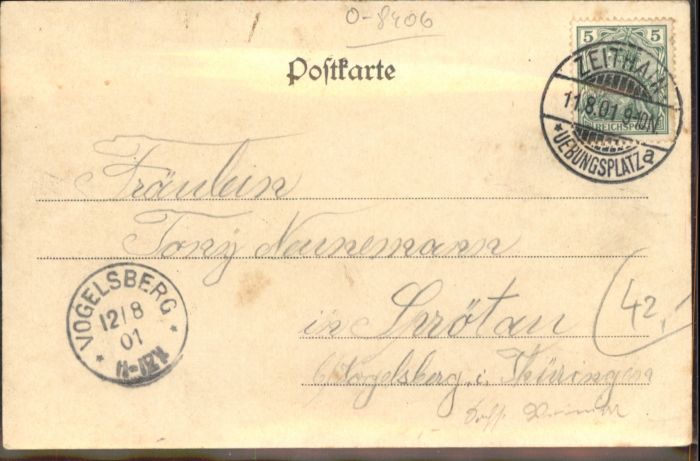 0-8406
Postkarte
5 5
REICHSPOST
ZEITHAIN
11.8.01 9-10N
*UEBUNGSPLATZ a
Fräulein
Tony Nennemann
in Sprötau
b/Vogelsberg i. Thüringen
Weimar
42,
VOGELSBERG
12/8
01
11-12V